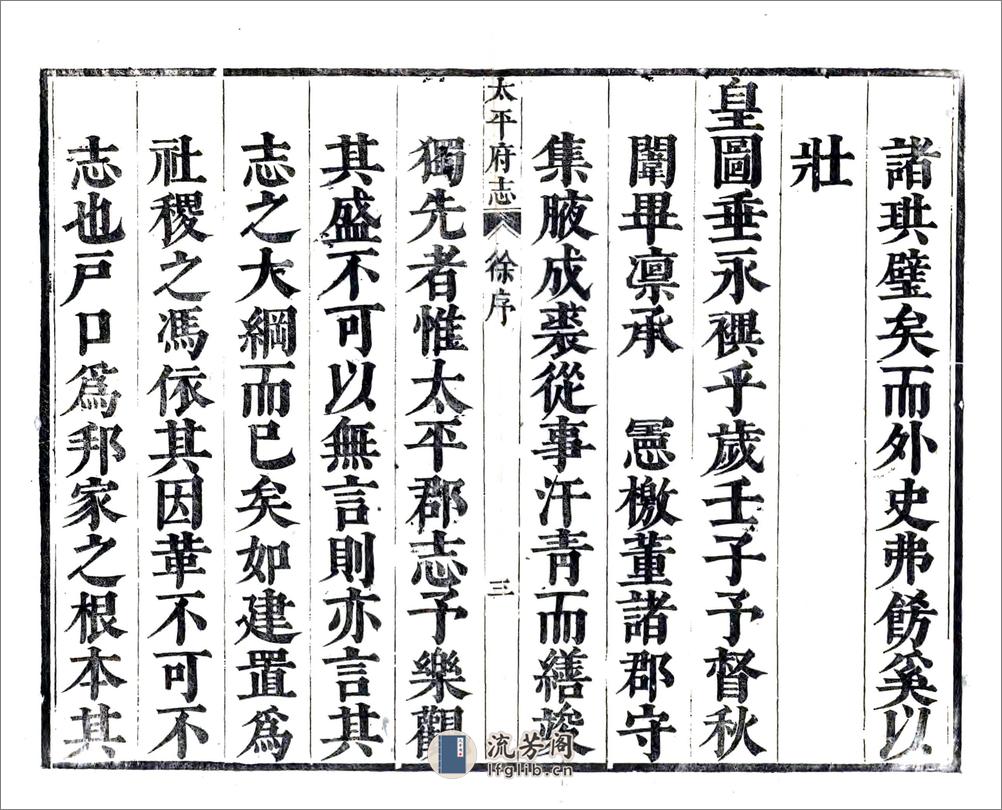 諸珙璧矣而外史弗飭奚以
壯
皇圖垂永禩乎歲壬子予督秋
闈畢凛承　憲檄董諸郡守
集腋成裘從事汗青而繕竣
太平府志　徐序　三
獨先者惟太平郡志予樂觀
其盛不可以無言則亦言其
志之大綱而已矣如建置爲
社稷之馮依其因革不可不
志也戸口爲邦家之根本其
流芳阁
lfglib.cn